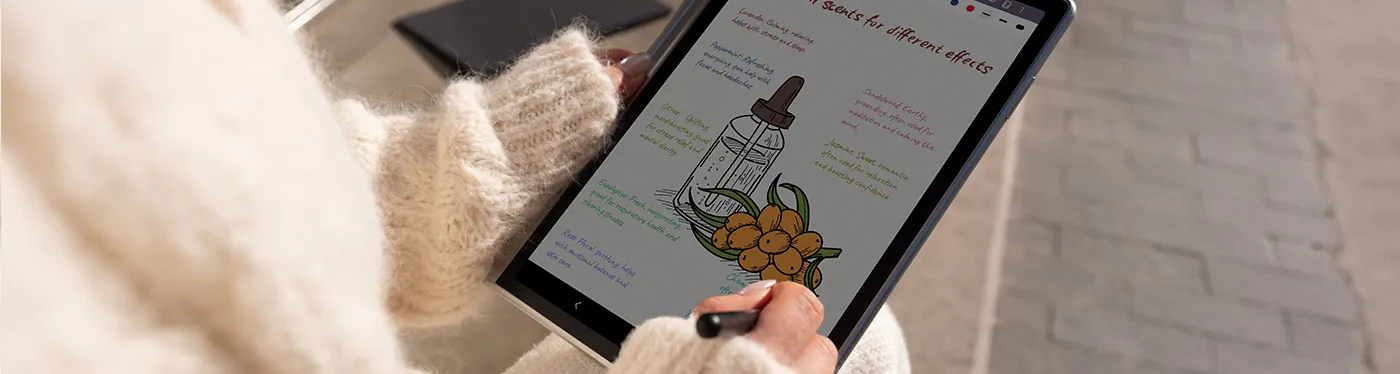 scents for different effects
Lavender: Calming, relaxing,
helps with stress and sleep
Peppermint: Refreshing,
energizing, can help with
focus and headaches
Citrus: Uplifting,
mood-boosting, good
for stress relief and
mental clarity
Eucalyptus: Fresh, invigorating,
good for respiratory health and
clearing sinuses
Rose: Floral, soothing, helps
with emotional balance and
skin care
Sandalwood: Earthy,
grounding, often used for
meditation and calming the
mind
Jasmine: Sweet, romantic,
often used for relaxation
and boosting confidence